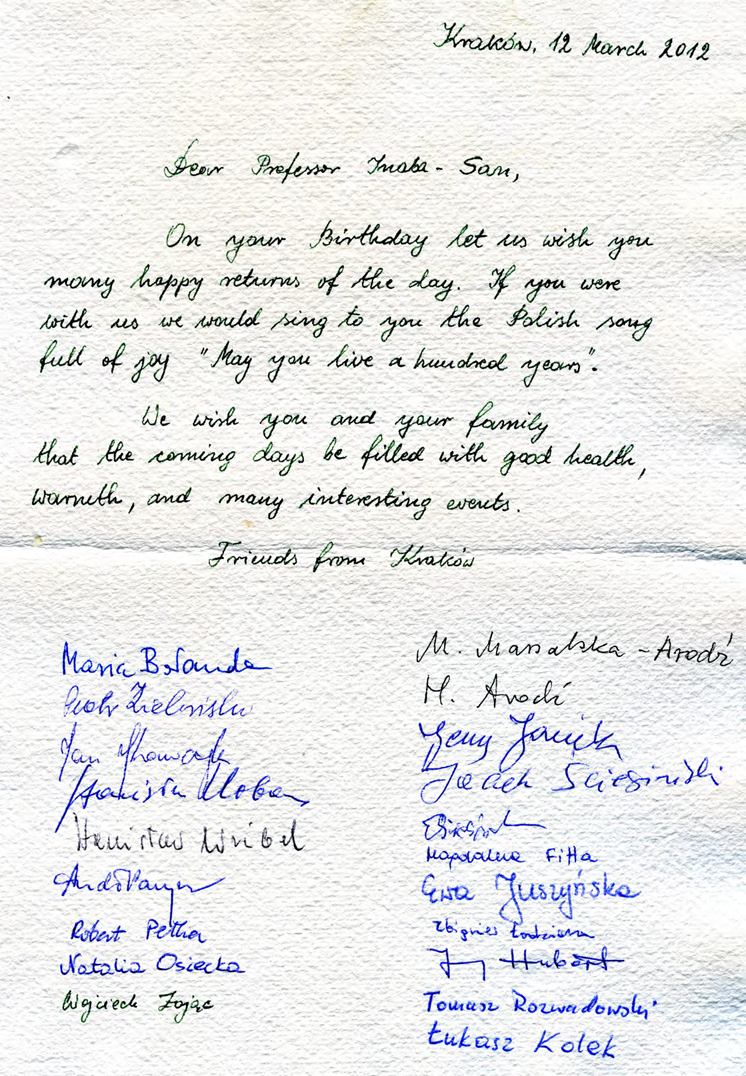 Kraków, 12 March 2012
Dear Professor Inaba-San,
On your Birthday let us wish you
many happy returns of the day. If you were
with us we would sing to you the Polish song
full of joy "May you live a hundred years".
We wish you and your family
that the coming days be filled with good health,
warmth, and many interesting events.
Friends from Kraków
Maria
Piotr Zieliński
Jan
Stanisław
Stanisław Wróbel
Robert Pełka
Natalia Osiecka
Wojciech Zając
M. Massalska-Arodź
H. Arodź
Jerzy Janik
Jacek Ściesiński
Magdalena Fitta
Ewa Juszyńska
Zbigniew Łodziana
Jerzy Hubert
Tomasz Rozwadowski
Łukasz Kolek